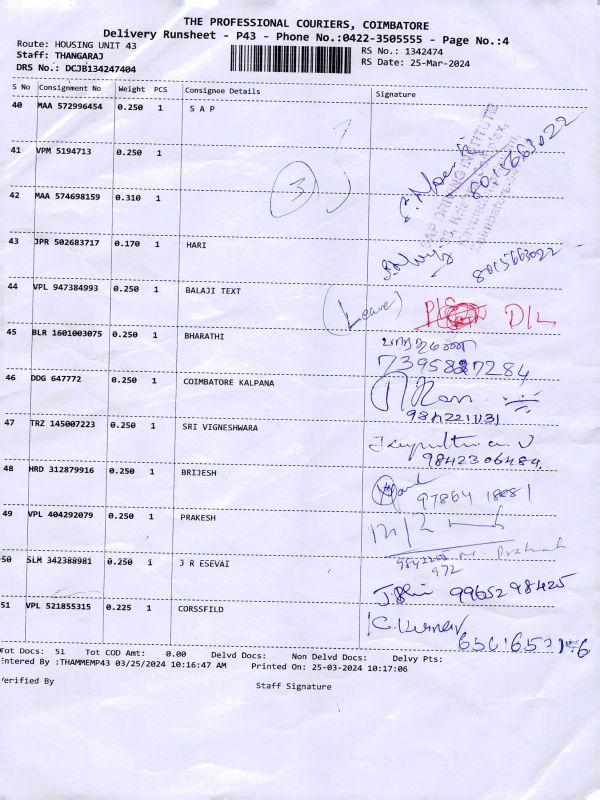 THE PROFESSIONAL COURIERS, COIMBATORE
Delivery Runsheet - P43 - Phone No.:0422-3505555 - Page No.:4
Route: HOUSING UNIT 43 RS No.: 1342474
Staff: THANGARAJ RS Date: 25-Mar-2024
DRS No.: DCJB134247404
S No Consignment No Weight PCS Consignee Details Signature
40 MAA 572996454 0.250 1 S A P
41 VPM 5194713 0.250 1
3
8015663022
42 MAA 574698159 0.310 1
43 JPR 502683717 0.170 1 HARI
8015663022
44 VPL 947384993 0.250 1 BALAJI TEXT
(Leave) D/L
45 BLR 1601003075 0.250 1 BHARATHI
7395887284
46 DDG 647772 0.250 1 COIMBATORE KALPANA
47 TRZ 145007223 0.250 1 SRI VIGNESHWARA
9842306484
48 HRD 312879916 0.250 1 BRIJESH
97864 18881
49 VPL 404292079 0.250 1 PRAKESH
50 SLM 342388981 0.250 1 J R ESEVAI
9965298425
51 VPL 521855315 0.225 1 CORSSFILD
Tot Docs: 51 Tot COD Amt: 0.00 Delvd Docs: Non Delvd Docs: Delvy Pts:
Entered By :THAMMEMP43 03/25/2024 10:16:47 AM Printed On: 25-03-2024 10:17:06
Verified By
Staff Signature